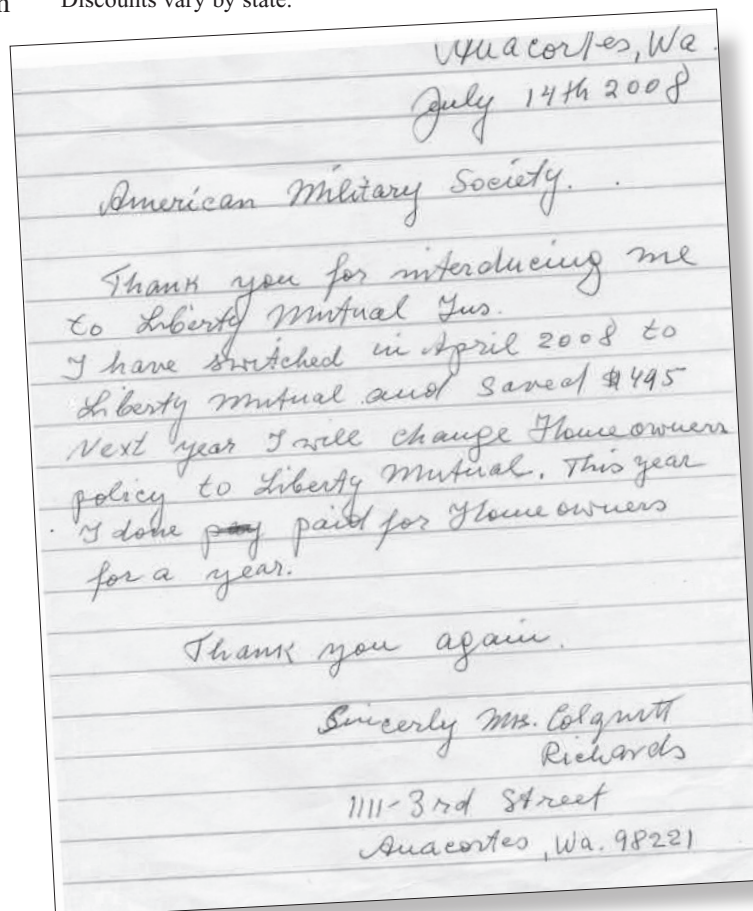 Discounts vary by state.
Anacortes, Wa.
July 14th 2008
American Military Society. .
Thank you for interducing me
to Liberty Mutual Ins.
I have switched in April 2008 to
Liberty Mutual and saved $495
Next year I will change Homeowners
policy to Liberty Mutual. This year
I done paid for Homeowners
for a year.
Thank you again.
Sincerly Mrs.
Richards
1111-3rd Street
Anacortes, Wa. 98221